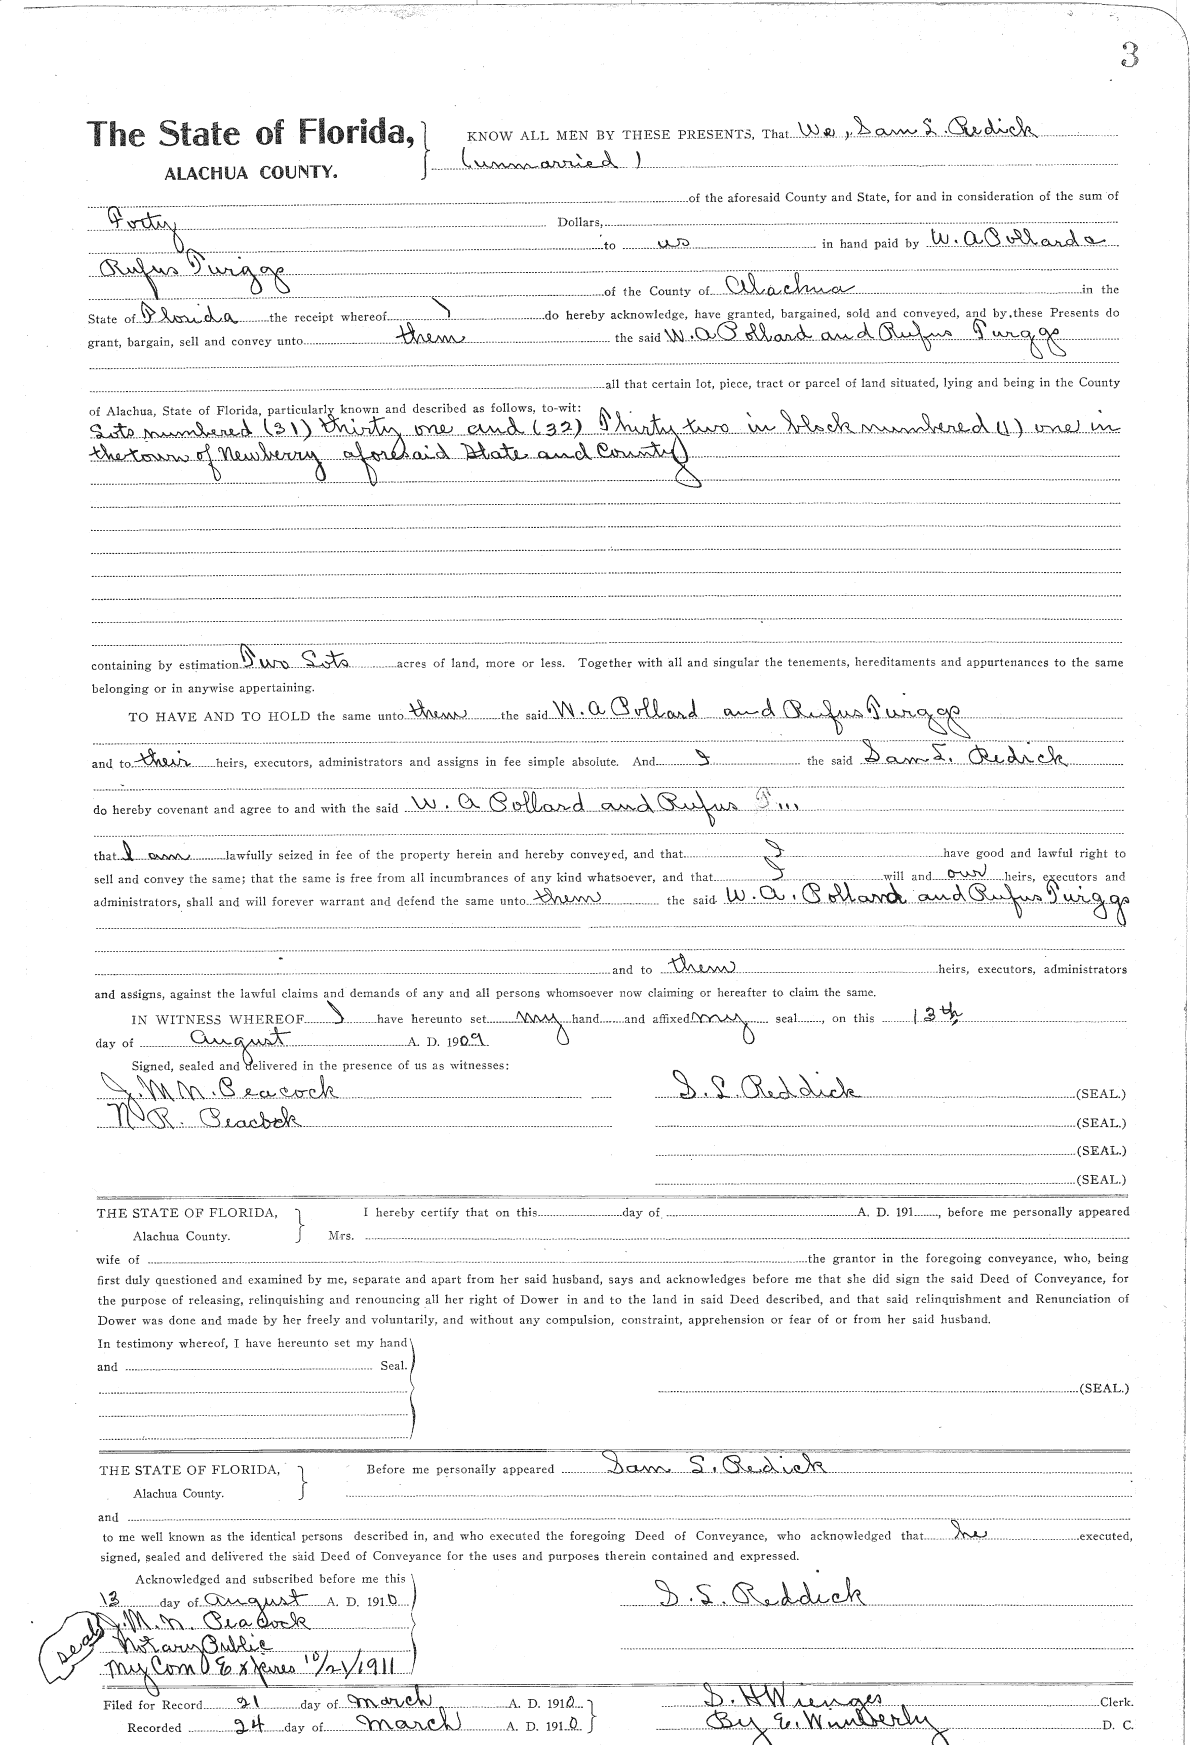 3
The State of Florida, KNOW ALL MEN BY THESE PRESENTS, That We, Sam L. Redick
ALACHUA COUNTY. (unmarried)
of the aforesaid County and State, for and in consideration of the sum of
Forty Dollars,
to us in hand paid by W. A Pollard &
Rufus Twiggs
of the County of Alachua in the
State of Florida the receipt whereof I do hereby acknowledge, have granted, bargained, sold and conveyed, and by these Presents do
grant, bargain, sell and convey unto them the said W. A Pollard and Rufus Twiggs
all that certain lot, piece, tract or parcel of land situated, lying and being in the County
of Alachua, State of Florida, particularly known and described as follows, to-wit:
Lots numbered (31) thirty one and (32) Thirty two in block numbered (1) one in
the town of Newberry aforesaid State and County
containing by estimation Two Lots acres of land, more or less. Together with all and singular the tenements, hereditaments and appurtenances to the same
belonging or in anywise appertaining.
TO HAVE AND TO HOLD the same unto them the said W. A Pollard and Rufus Twiggs
and to their heirs, executors, administrators and assigns in fee simple absolute. And I the said Sam L. Redick
do hereby covenant and agree to and with the said W. A Pollard and Rufus T...
that I am lawfully seized in fee of the property herein and hereby conveyed, and that I have good and lawful right to
sell and convey the same; that the same is free from all incumbrances of any kind whatsoever, and that I will and our heirs, executors and
administrators, shall and will forever warrant and defend the same unto them the said W. A. Pollard and Rufus Twiggs
and to them heirs, executors, administrators
and assigns, against the lawful claims and demands of any and all persons whomsoever now claiming or hereafter to claim the same.
IN WITNESS WHEREOF I have hereunto set my hand and affixed my seal, on this 13th
day of August A. D. 1909
Signed, sealed and delivered in the presence of us as witnesses:
J. M N. Peacock S. L Reddick (SEAL.)
N R. Peacock (SEAL.)
(SEAL.)
(SEAL.)
THE STATE OF FLORIDA, I hereby certify that on this day of A. D. 191, before me personally appeared
Alachua County. Mrs.
wife of the grantor in the foregoing conveyance, who, being
first duly questioned and examined by me, separate and apart from her said husband, says and acknowledges before me that she did sign the said Deed of Conveyance, for
the purpose of releasing, relinquishing and renouncing all her right of Dower in and to the land in said Deed described, and that said relinquishment and Renunciation of
Dower was done and made by her freely and voluntarily, and without any compulsion, constraint, apprehension or fear of or from her said husband.
In testimony whereof, I have hereunto set my hand
and Seal.
(SEAL.)
THE STATE OF FLORIDA, Before me personally appeared Sam L. Redick
Alachua County.
and
to me well known as the identical persons described in, and who executed the foregoing Deed of Conveyance, who acknowledged that he executed,
signed, sealed and delivered the said Deed of Conveyance for the uses and purposes therein contained and expressed.
Acknowledged and subscribed before me this
13 day of August A. D. 1910 S. L. Reddick
J. M. N. Peacock
seal Notary Public
My Com Expires 10/21/1911
Filed for Record 21 day of March A. D. 1910 S. H Wienges Clerk.
Recorded 24 day of March A. D. 1910 By E. Wimberly D. C.